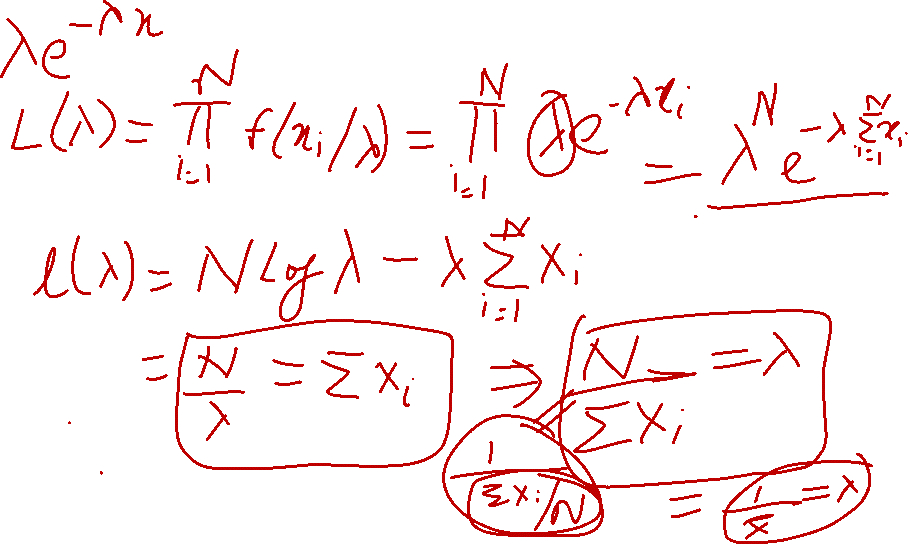 λe^{-λx}
L(λ) = ∏_{i=1}^{N} f(x_i/λ) = ∏_{i=1}^{N} λe^{-λx_i} = λ^N e^{-λ∑_{i=1}^{N} x_i}
l(λ) = N Log λ - λ ∑_{i=1}^{N} x_i
= N/λ = ∑ x_i ⇒ N/∑x_i = λ
1/(∑x_i/N) = 1/x̄ = λ